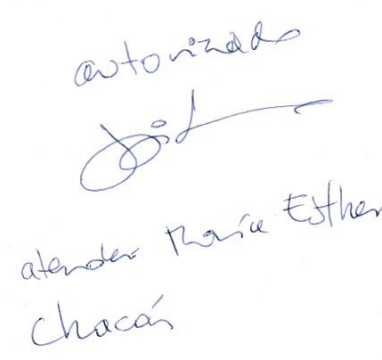 autorizado
atender María Esther
Chacón